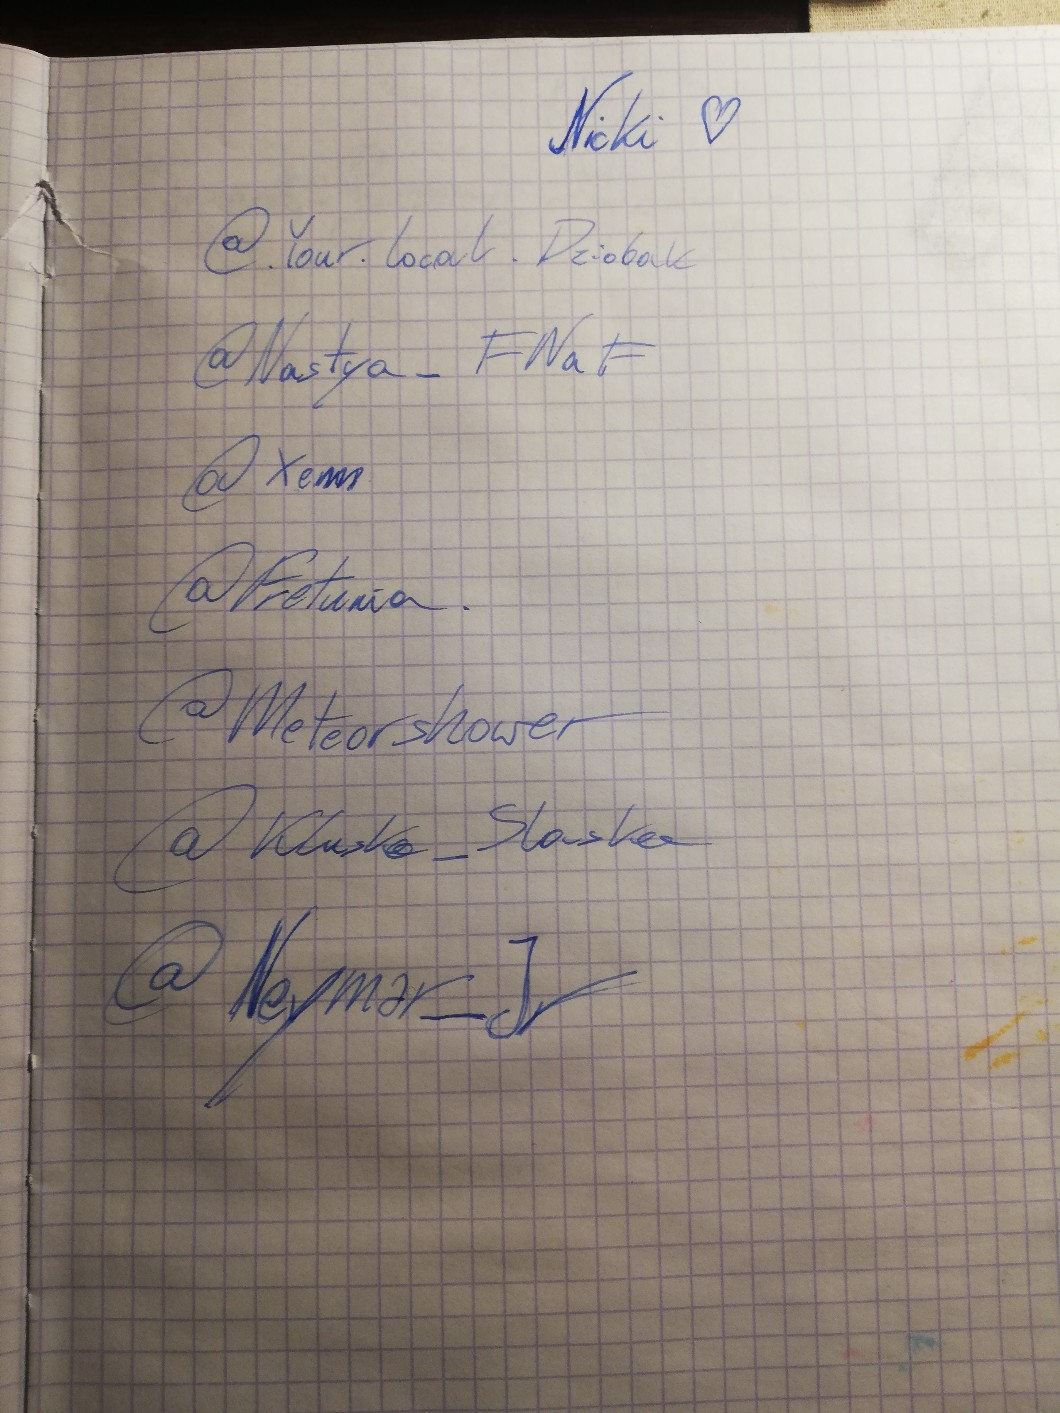 Nicki ♡
@.Your.local.Dziobak
@Nastya_FNaF
@Fretunia.
@Meteorshower
@Kluska_Slaska
@Neymar_Jr